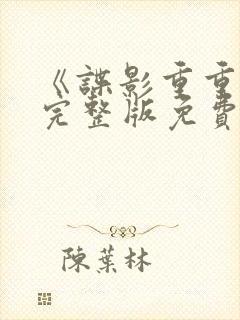 《諜影重重
完整版免費
陳葉林